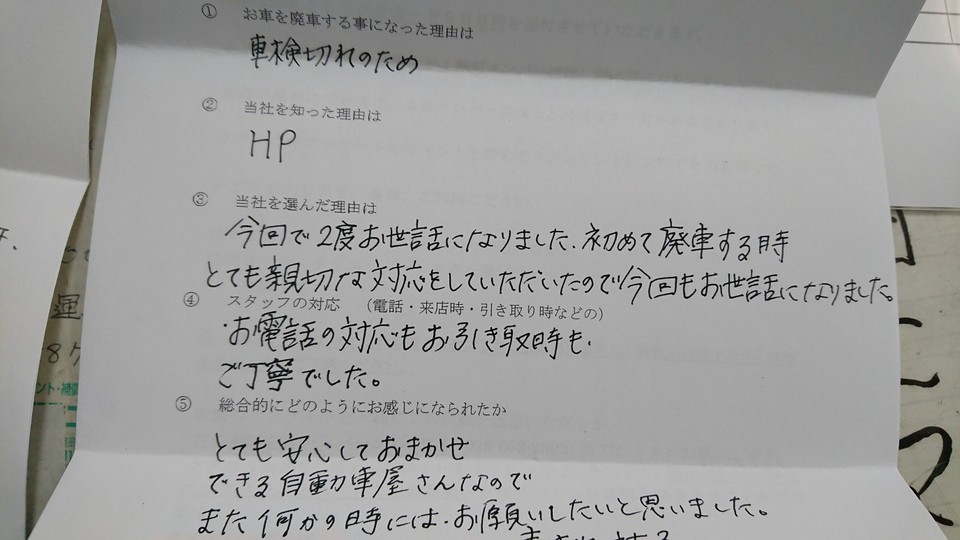 ① お車を廃車する事になった理由は
車検切れのため
② 当社を知った理由は
HP
③ 当社を選んだ理由は
今回で2度お世話になりました、初めて廃車する時
とても親切な対応をしていただいたので今回もお世話になりました。
④ スタッフの対応 (電話・来店時・引き取り時などの)
・お電話の対応もお引き取時も、
ご丁寧でした。
⑤ 総合的にどのようにお感じになられたか
とても安心しておまかせ
できる自動車屋さんなので
また何かの時には、お願いしたいと思いました。
運
8ケ